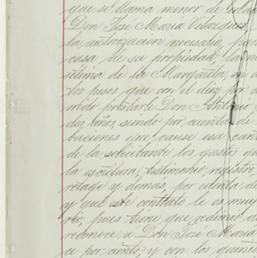 que se llama menor de edad
Don José María Velazquez
la autorizacion necesaria, para
casa de su propiedad, llama
sitima de la Margarita, en
tos pesos que con el diez por
nido prestarle Don Antonio
dos años, siendo por cuenta de
buciones que cause esa can
de la solicitante los gastos que
la escritura, testimonio, registro,
retage y demas, por cuenta de
y que este contrato le es muy
so, pues tiene que redimir
reconoce a Don José María
ce por ciento, y con los quinien